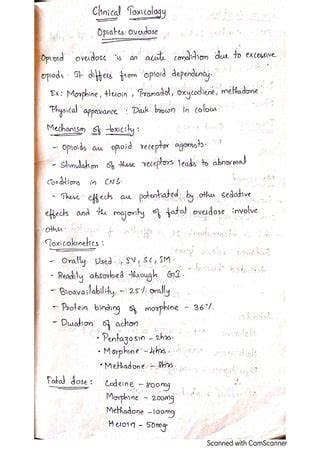 Clinical Toxicology
Opiates Overdose
Opioid overdose is an acute condition due to excessive
opiods. It differs from opioid dependency.
Ex: Morphine, Heroin, Pranadol, Oxycodiene, methadone.
Physical appearance : Dark brown in colour
Mechanism of toxicity:
- Opioids are opioid receptor agonists.
- Stimulation of these receptors leads to abnormal
Conditions in CNS.
- These effects are potentiated by other sedative
effects and the majority of fatal overdose involve
other.
Toxicokinetics :
- Orally Used, IV, SC, IM.
- Readily absorbed through GIT.
- Bioavailability - 25% orally
- Protein binding of morphine - 36%
- Duration of action
• Pentazosin - 2hrs.
• Morphone - 4hrs.
• Methadone - 8hrs
Fatal dose : Codeine - 800mg
Morphine - 200mg
Methadone - 100mg
Heroin - 50mg
Scanned with CamScanner